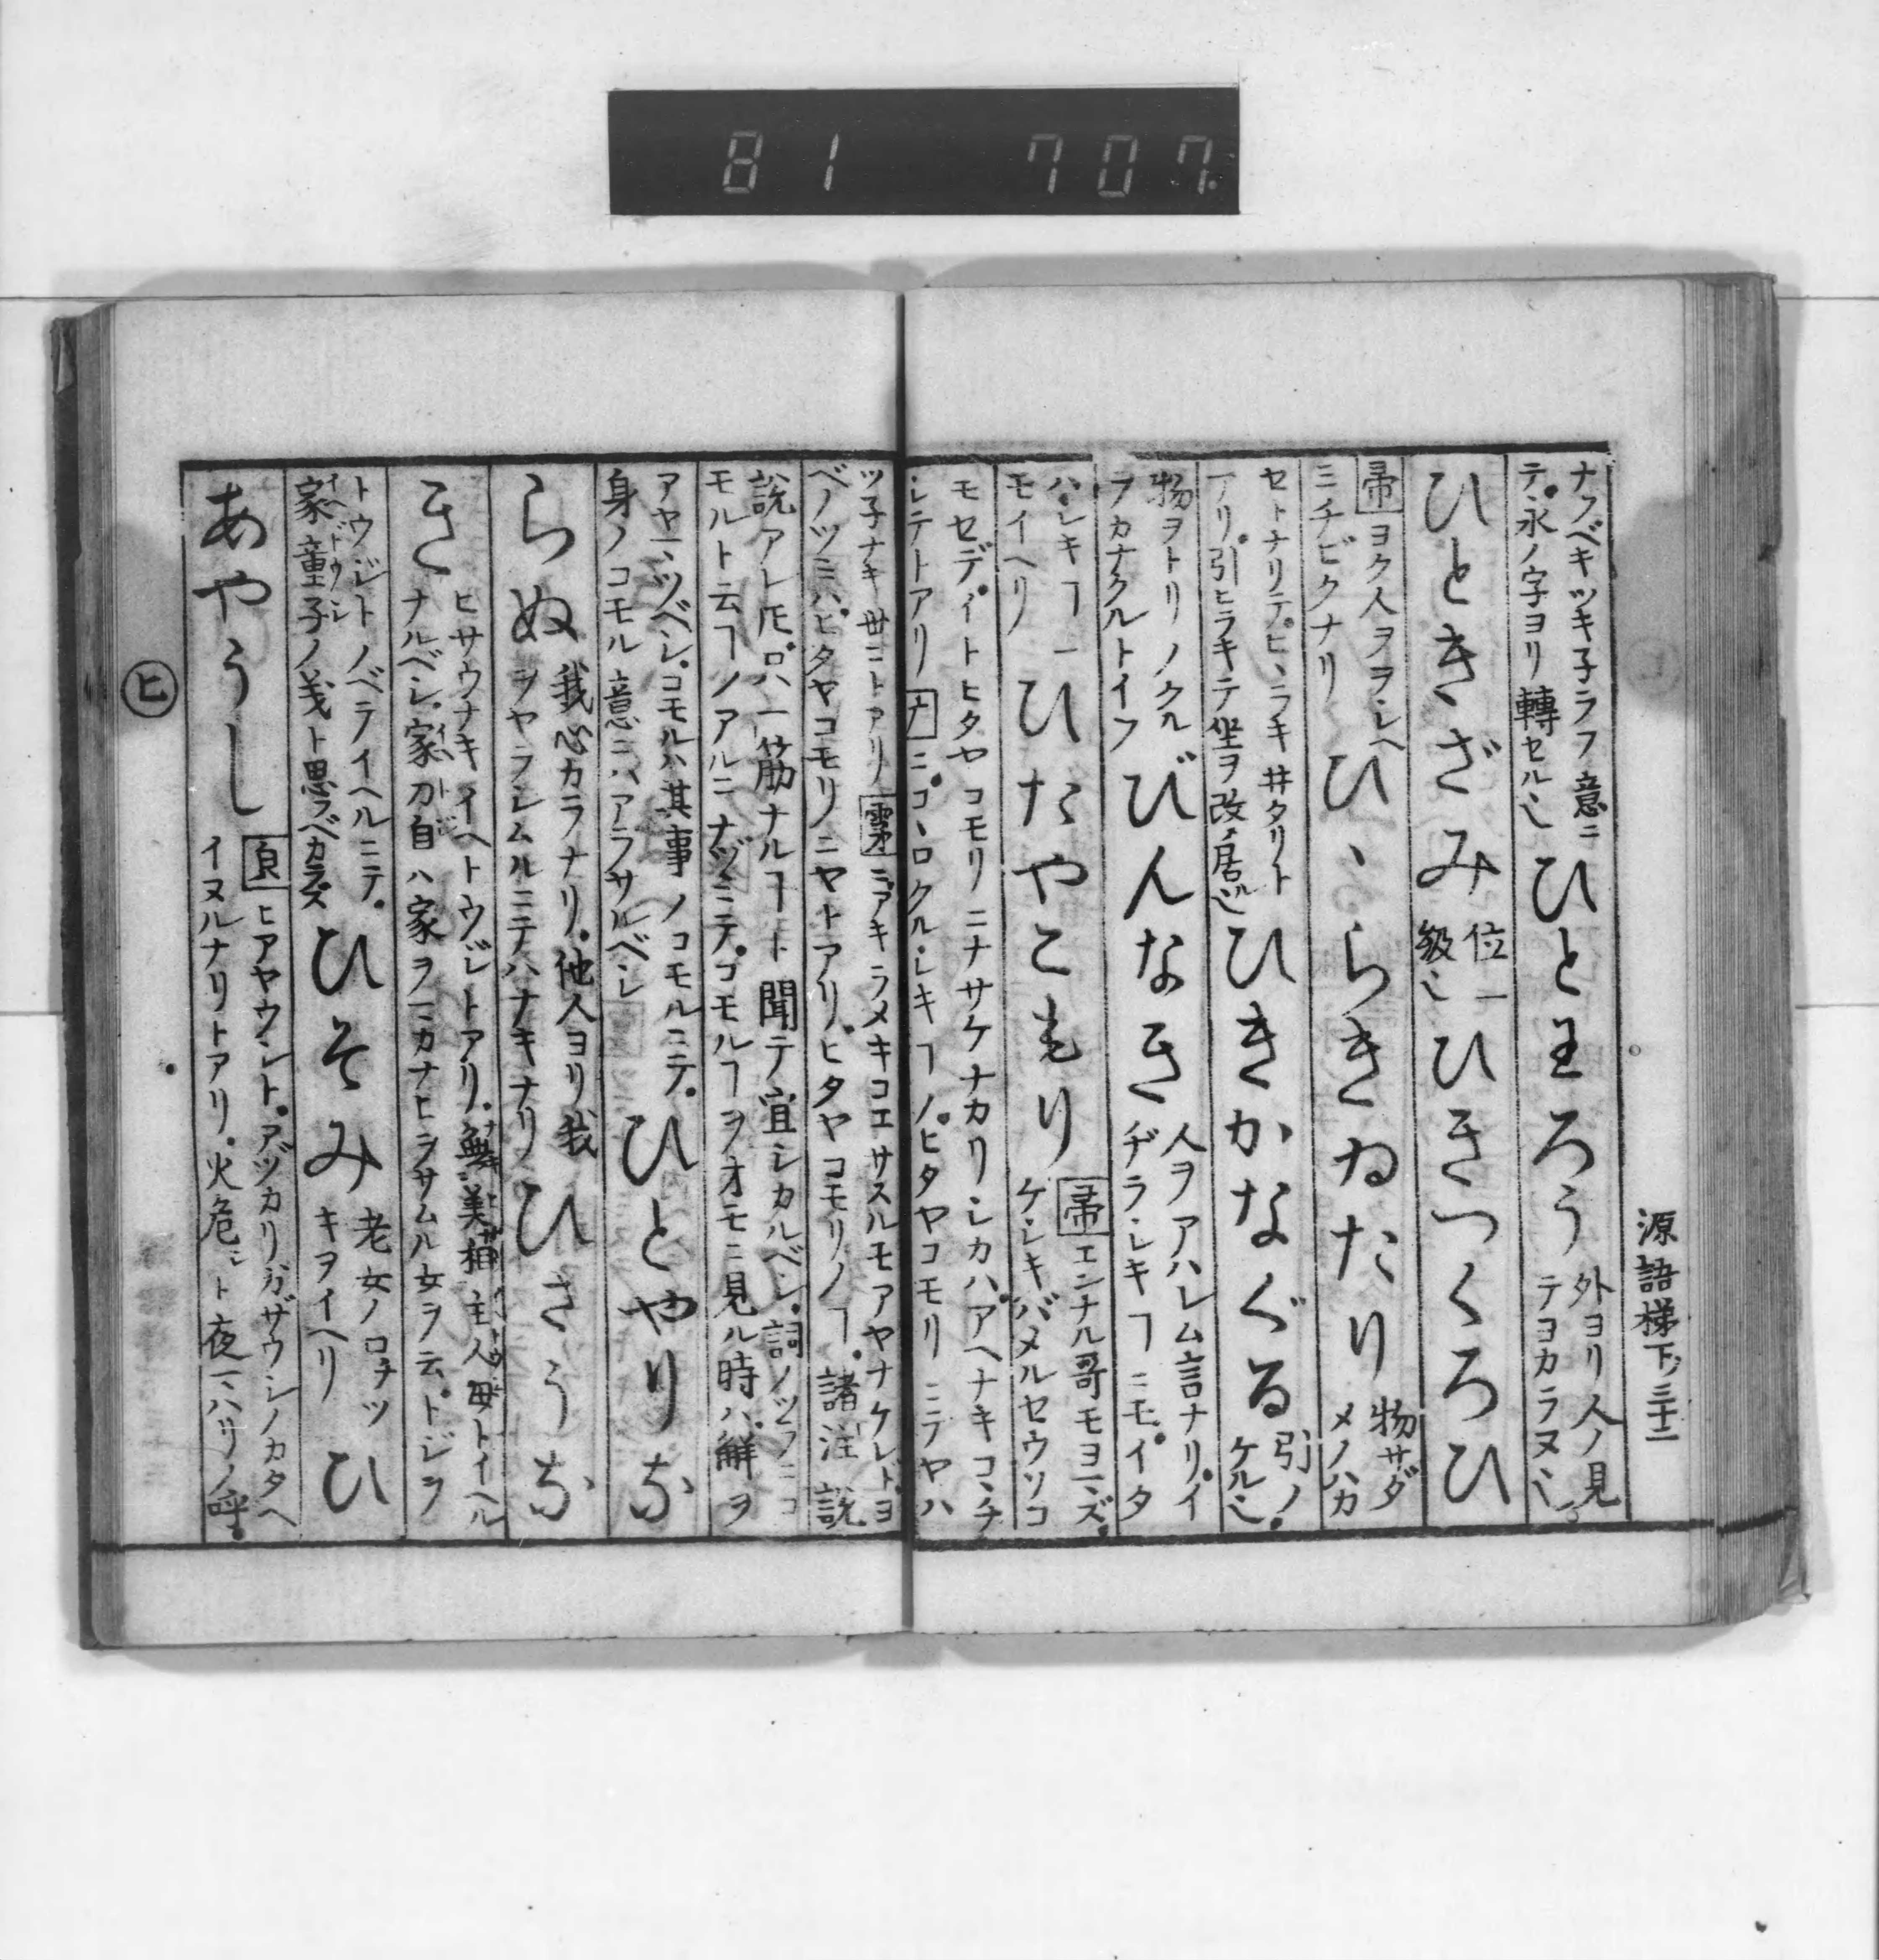 81 707
源語梯下ノ三十二
ナフベキツキ子ラフ意ニ
テ永ノ字ヨリ轉セル也
ひとわろう
外ヨリ人ノ見
テヨカラヌ也
ひときざみ
位一
級也
ひきつくろひ
帚ヨク人ヲヲシヘ
ミチビクナリ
ひヽらきゐたり
物サダ
メノハカ
セトナリテヒヽラキ井タリト
アリ引ヒラキテ坐ヲ改メ居ル也
ひきかなぐる
引ノ
ケル也
物ヲトリノクル
ヲカナクルトイフ
びんなき
人ヲアハレム言ナリイ
ヂラシキヿニモイタ
ハシキヿニ
モイヘリ
ひたやこもり
帚エンナル哥モヨマズ
ケシキバメルセウソコ
モセデイトヒタヤコモリニナサケナカリシカハアヘナキコヽチ
シテトアリナニコヽロクルシキヿノヒタヤコモリニヲヤハ
ツ子ナキ世ニトアリ㚑ミアキラメキコエサスルモアヤナケレドヨ
ベノツミハヒタヤコモリニヤトアリヒタヤコモリノヿ諸注説
説アレ𪜈ロハ一筋ナルヿト聞テ宜シカルベシ詞ノツラニコ
モルト云ヿノアルニナヅミテコモルヿヲオモニ見ル時ハ解ヲ
アヤマツベシコモルハ其事ノコモルニテ
身ノコモル意ニハアラサルベシ
ひとやりな
らぬ
我心カラナリ他人ヨリ我
ヲヤラシムルニテハナキナリ
ひさうな
き
ヒサウナキイヘトウジトアリ
ナルベシ家刀自ハ家ヲマカナヒヲサムル女ヲ云トジヲ
トウジトノベテイヘルニテ
家童子ノ義ト思フベカラズ
ひそみ
老女ノロナツ
キヲイヘリ
ひ
あやうし
ヒアヤウシトアヅカリガザウシノカタヘ
イヌルナリトアリ火危シト夜マハリノ呼
ヒ